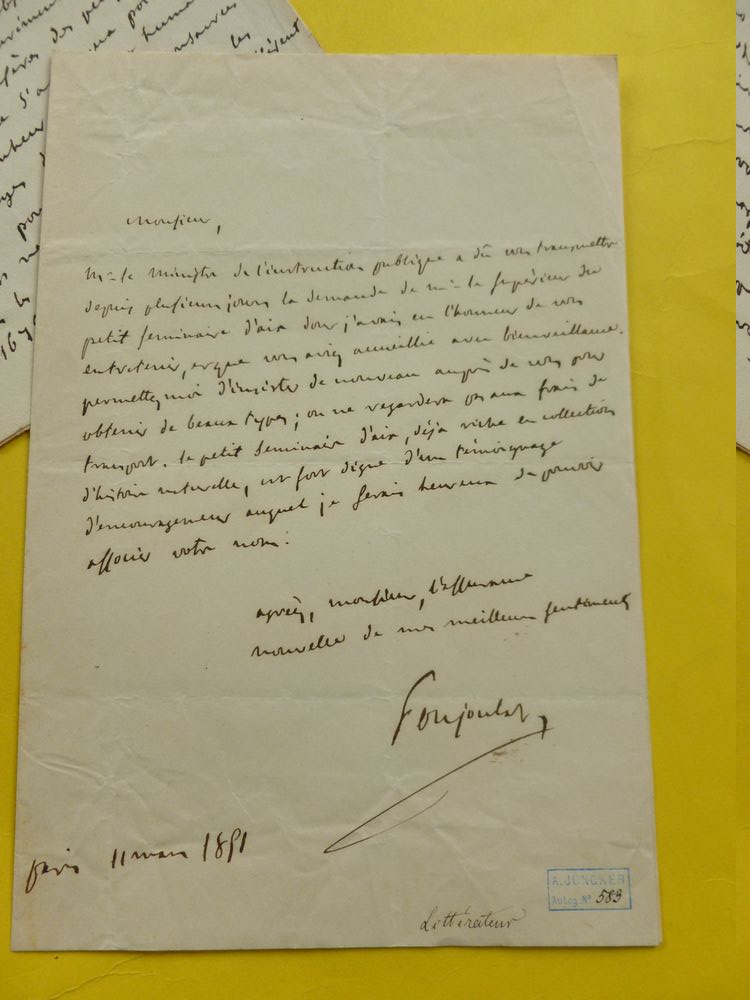 Monsieur,
Mr le Ministre de l'instruction publique a dû vous transmettre
depuis plusieurs jours la demande de Mr le supérieur du
petit séminaire d'aix dont j'avais eu l'honneur de vous
entretenir, et que vous aviez accueillie avec bienveillance.
permettez moi d'insister de nouveau auprès de vous pour
obtenir de beaux types; on ne regardera pas aux frais de
transport. le petit séminaire d'aix, déjà riche en collections
d'histoire naturelle, est fort digne d'un témoignage
d'encouragement auquel je serais heureux de pouvoir
associer votre nom.
agréez, monsieur, l'assurance
nouvelle de mes meilleurs sentiments
Poujoulat
paris 11 mars 1851
A. JUNCKER
Autog. No 583
Littérateur